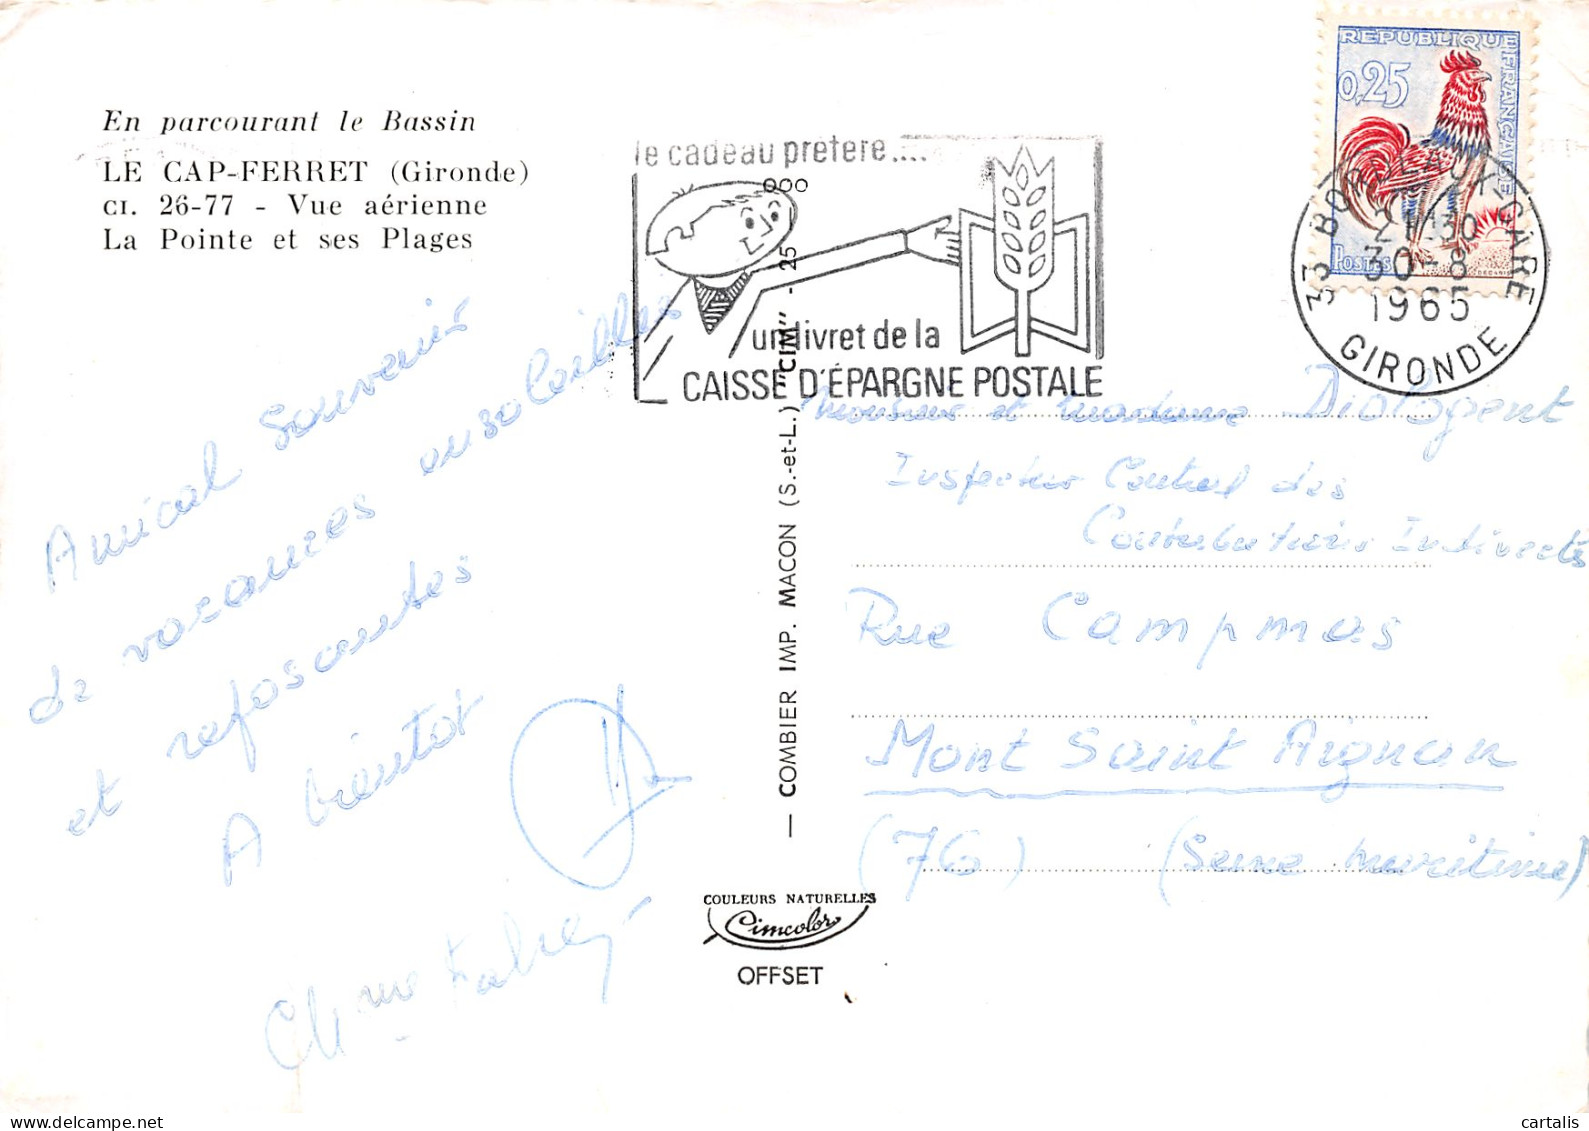 En parcourant le Bassin
LE CAP-FERRET (Gironde)
CI. 26-77 - Vue aérienne
La Pointe et ses Plages
Amical Souvenir
de vacances ensoleillées
et reposantes
A bientôt
le cadeau préféré....
un livret de la
CAISSE D'ÉPARGNE POSTALE
REPUBLIQUE FRANÇAISE
0,25
POSTES
DECARIS
33 BORDEAUX-GARE
21H30
30-8
1965
GIRONDE
— COMBIER IMP. MACON (S.-et-L.) "CIM" - 25 000
COULEURS NATURELLES
Cimcolor
OFFSET
Monsieur et Madame
Inspecteur Central des
Contributions Indirectes
Rue Campmas
Mont Saint Aignan
(76) (Seine maritime)
delcampe.net
cartalis